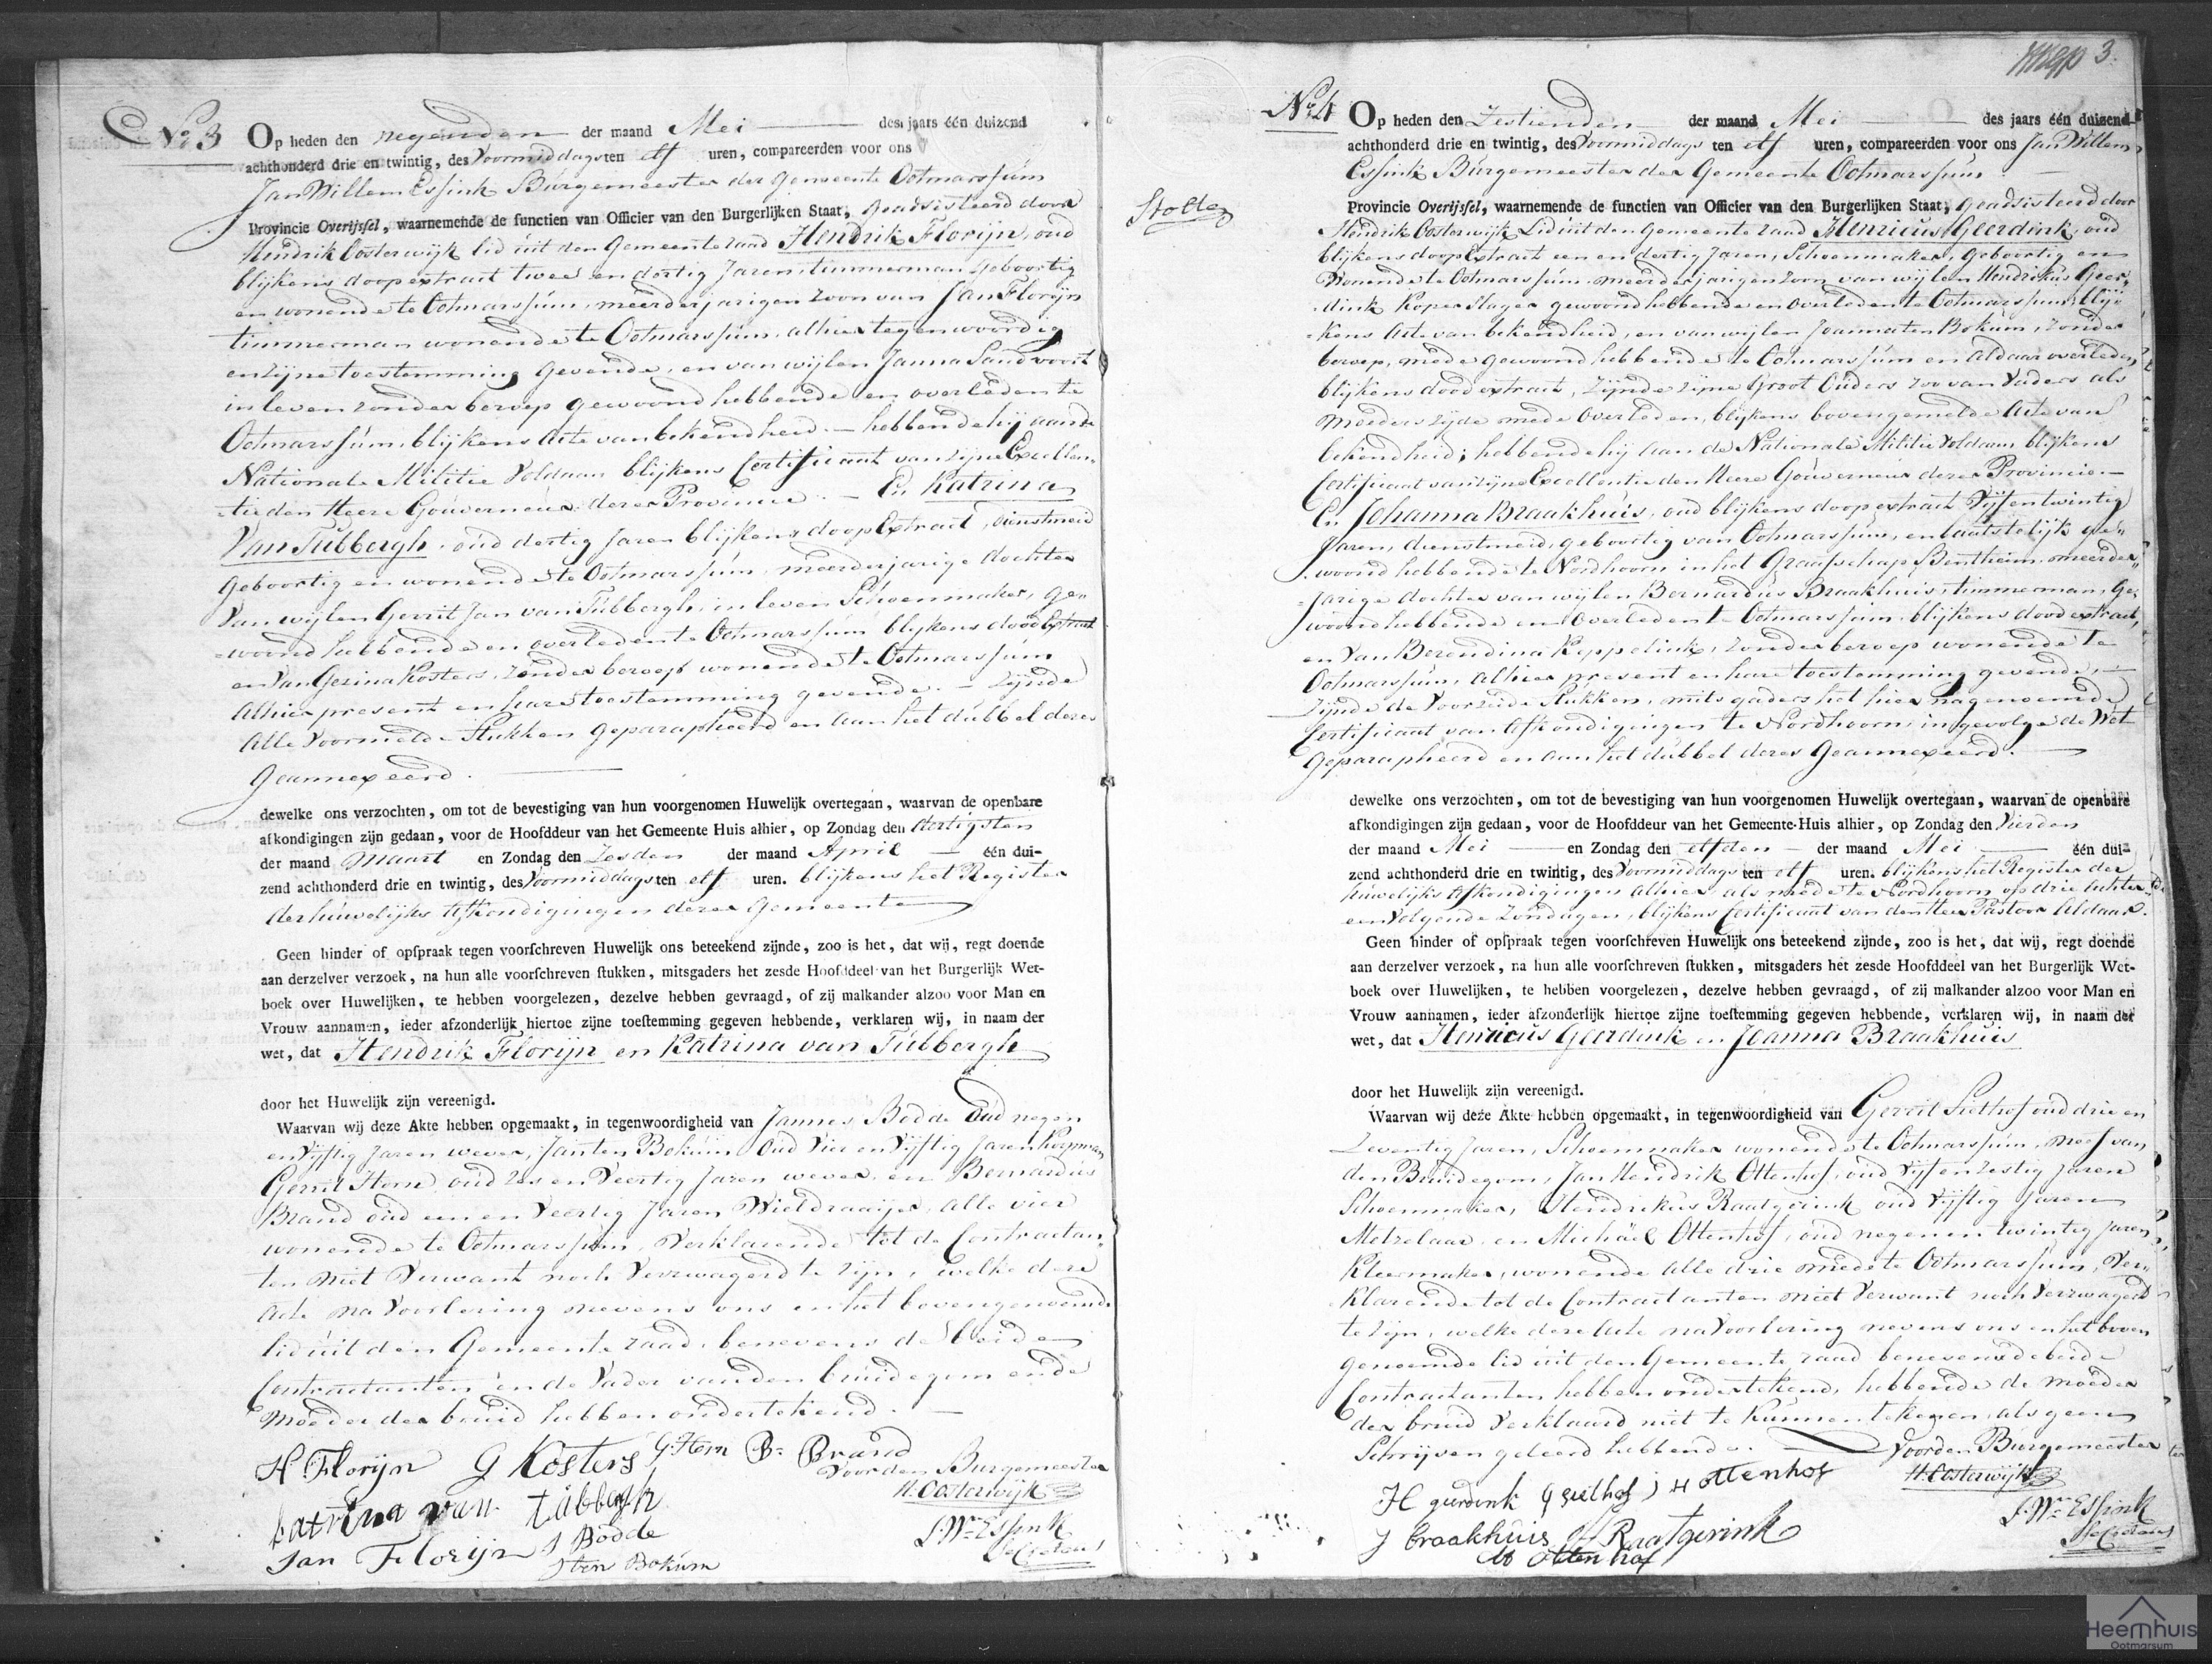 No 3 Op heden den negenden der maand Mei des jaars één duizend
achthonderd drie en twintig, des Voormiddags ten elf uren, compareerden voor ons
Jan Willem Essink Burgemeester der Gemeente Ootmarssum
Provincie Overijssel, waarnemende de functien van Officier van den Burgerlijken Staat, geadsisteerd door
Hendrik Oosterwijk lid uit den Gemeente raad Hendrik Florijn, oud
blijkens doopextract twee en dertig Jaren timmerman geboortig
en wonende te Ootmarssum, meerderjarigen zoon van Jan Florijn
timmerman wonende te Ootmarssum, alhier tegenwoordig
en zijne toestemming gevende, en van wijlen Janna Sandvoort
in leven zonder beroep gewoond hebbende en overleden te
Ootmarssum, blijkens Acte van bekendheid. — hebbende hij aan de
Nationale Militie Voldaan blijkens Certificaat van zijne Excellen-
tie den Heere Gouverneur dezer Provincie. — En Katrina
Van Tubbergh, oud dertig Jaren blijkens doopExtract, dienstmeid
geboortig en wonende te Ootmarssum, meerderjarige dochter
Van wijlen Gerrit Jan van Tubbergh, in leven Schoenmaker, ge-
woond hebbende en overleden te Ootmarssum blijkens doodExtract
en Van Gezina Kosters, zonder beroep wonende te Ootmarssum
Alhier present en hare toestemming gevende. — Zijnde
Alle Voormelde Stukken geparapheerd en aan het dubbel dezes
geannexeerd.
dewelke ons verzochten, om tot de bevestiging van hun voorgenomen Huwelijk overtegaan, waarvan de openbare
afkondigingen zijn gedaan, voor de Hoofddeur van het Gemeente Huis alhier, op Zondag den dertigsten
der maand Maart en Zondag den Zesden der maand April één dui-
zend achthonderd drie en twintig, des Voormiddags ten elf uren. blijkens het Register
der huwelijks Afkondigingen dezer Gemeente
Geen hinder of opspraak tegen voorschreven Huwelijk ons beteekend zijnde, zoo is het, dat wij, regt doende
aan derzelver verzoek, na hun alle voorschreven stukken, mitsgaders het zesde Hoofddeel van het Burgerlijk Wet-
boek over Huwelijken, te hebben voorgelezen, dezelve hebben gevraagd, of zij malkander alzoo voor Man en
Vrouw aannamen, ieder afzonderlijk hiertoe zijne toestemming gegeven hebbende, verklaren wij, in naam der
wet, dat Hendrik Florijn en Katrina van Tubbergh
door het Huwelijk zijn vereenigd.
Waarvan wij deze Akte hebben opgemaakt, in tegenwoordigheid van Jannes Bodde Oud negen
en Vijftig Jaren wever, Jan ten Bokum Oud Vier en Vijftig Jaren Koopman
Gerrit Horn, oud zes en Veertig Jaren wever, en Bernardus
Brand oud een en Veertig Jaren Wieldraaijer, alle vier
wonende te Ootmarssum, Verklarende tot de Contractan-
ten niet Verwant noch Verzwagerd te zijn, welke deze
Acte na Voorlezing nevens ons en het bovengenoemde
lid uit den Gemeente raad, benevens de beide
Contractanten en de Vader van den bruidegom en de
Moeder der bruid hebben ondertekend.
H Florijn G Kosters G: Horn B. Brand
Voor den Burgemeester
H. Oosterwijk
katrina van tubbergh
J Bodde
J. Wm Essink
Secretaris
Jan Florijn
J ten Bokum
3.
No 4 Op heden den Zestienden der maand Mei des jaars één duizend
achthonderd drie en twintig, des Voormiddags ten elf uren, compareerden voor ons Jan Willem
Essink Burgemeester der Gemeente Ootmarssum
Provincie Overijssel, waarnemende de functien van Officier van den Burgerlijken Staat, geadsisteerd door
Hendrik Oosterwijk Lid uit den Gemeente raad Henricus Geerdink, oud
blijkens doopExtract een en dertig Jaren, Schoenmaker, geboortig en
Wonende te Ootmarssum, meerderjarigen Zoon van wijlen Hendrikus Geer-
dink Koperslager gewoond hebbende en Overleden te Ootmarssum, blij-
kens Acte van bekendheid, en van wijlen Joanna ten Bokum, Zonder
beroep, mede gewoond hebbende te Ootmarssum en Aldaar overleden
blijkens dood extract, Zijnde Zijne Groot Ouders zoo van Vaders als
Moeders zijde mede Overleden, blijkens bovengemelde Acte van
bekendheid; hebbende hij Aan de Nationale Militie Voldaan, blijkens
Certificaat van zijne Excellentie den Heere Gouverneur dezer Provincie. —
En Johanna Braakhuis, oud blijkens doopextract Vijf en twintig
Jaren, dienstmeid, geboortig van Ootmarssum, en laatstelijk ge-
woond hebbende te Nordhoorn in het Graafschap Bentheim, meerder-
jarige dochter van wijlen Bernardus Braakhuis, timmerman, ge-
woond hebbende en Overleden te Ootmarssum, blijkens doodextract,
en Van Berendina Keppelink, Zonder beroep wonende te
Ootmarssum, Alhier present en hare toestemming gevende, —
Zijnde de Voorzeide Stukken, mitsgaders het hier nagenoemde
Certificaat van Afkondigingen te Nordhoorn, ingevolge de Wet
Geparapheerd en aan het dubbel dezes Geannexeerd.
dewelke ons verzochten, om tot de bevestiging van hun voorgenomen Huwelijk overtegaan, waarvan de openbare
afkondigingen zijn gedaan, voor de Hoofddeur van het Gemeente-Huis alhier, op Zondag den Vierden
der maand Mei en Zondag den elfden der maand Mei één dui-
zend achthonderd drie en twintig, des Voormiddags ten elf uren. blijkens het Register der
huwelijks Afkondigingen Alhier, als mede te Nordhoorn op drie Achter
een Volgende Zondagen, blijkens Certificaat van den Heer Pastoor Aldaar.
Geen hinder of opspraak tegen voorschreven Huwelijk ons beteekend zijnde, zoo is het, dat wij, regt doende
aan derzelver verzoek, na hun alle voorschreven stukken, mitsgaders het zesde Hoofddeel van het Burgerlijk Wet-
boek over Huwelijken, te hebben voorgelezen, dezelve hebben gevraagd, of zij malkander alzoo voor Man en
Vrouw aannamen, ieder afzonderlijk hiertoe zijne toestemming gegeven hebbende, verklaren wij, in naam der
wet, dat Henricus Geerdink en Joanna Braakhuis
door het Huwelijk zijn vereenigd.
Waarvan wij deze Akte hebben opgemaakt, in tegenwoordigheid van Gerrit Sielhof oud drie en
Zeventig Jaren, Schoenmaker wonende te Ootmarssum, Neef van
den Bruidegom, Jan Hendrik Ottenhof, oud Vijf en zestig Jaren
Schoenmaker, Hendrikus Raatgerink oud Vijftig Jaren
Metzelaar en Michäel Ottenhof, oud negen en twintig Jaren
Kleermaker, wonende Alle drie mede te Ootmarssum, Ver-
Klarende tot de Contractanten niet Verwant noch Verzwagerd
te zijn, welke deze Acte na Voorlezing nevens ons en het boven
genoemde lid uit den Gemeente raad benevens de beide
Contractanten hebben ondertekend, hebbende de Moeder
der bruid Verklaard niet te Kunnen tekenen, als geen
Schrijven geleerd hebbende.
Voor den Burgemeester
H. Oosterwijk
H geerdink G sielhof J H ottenhof
J. Wm Essink
Secretaris
J braakhuis H Raatgerink
M ottenhof
Heemhuis
Ootmarsum